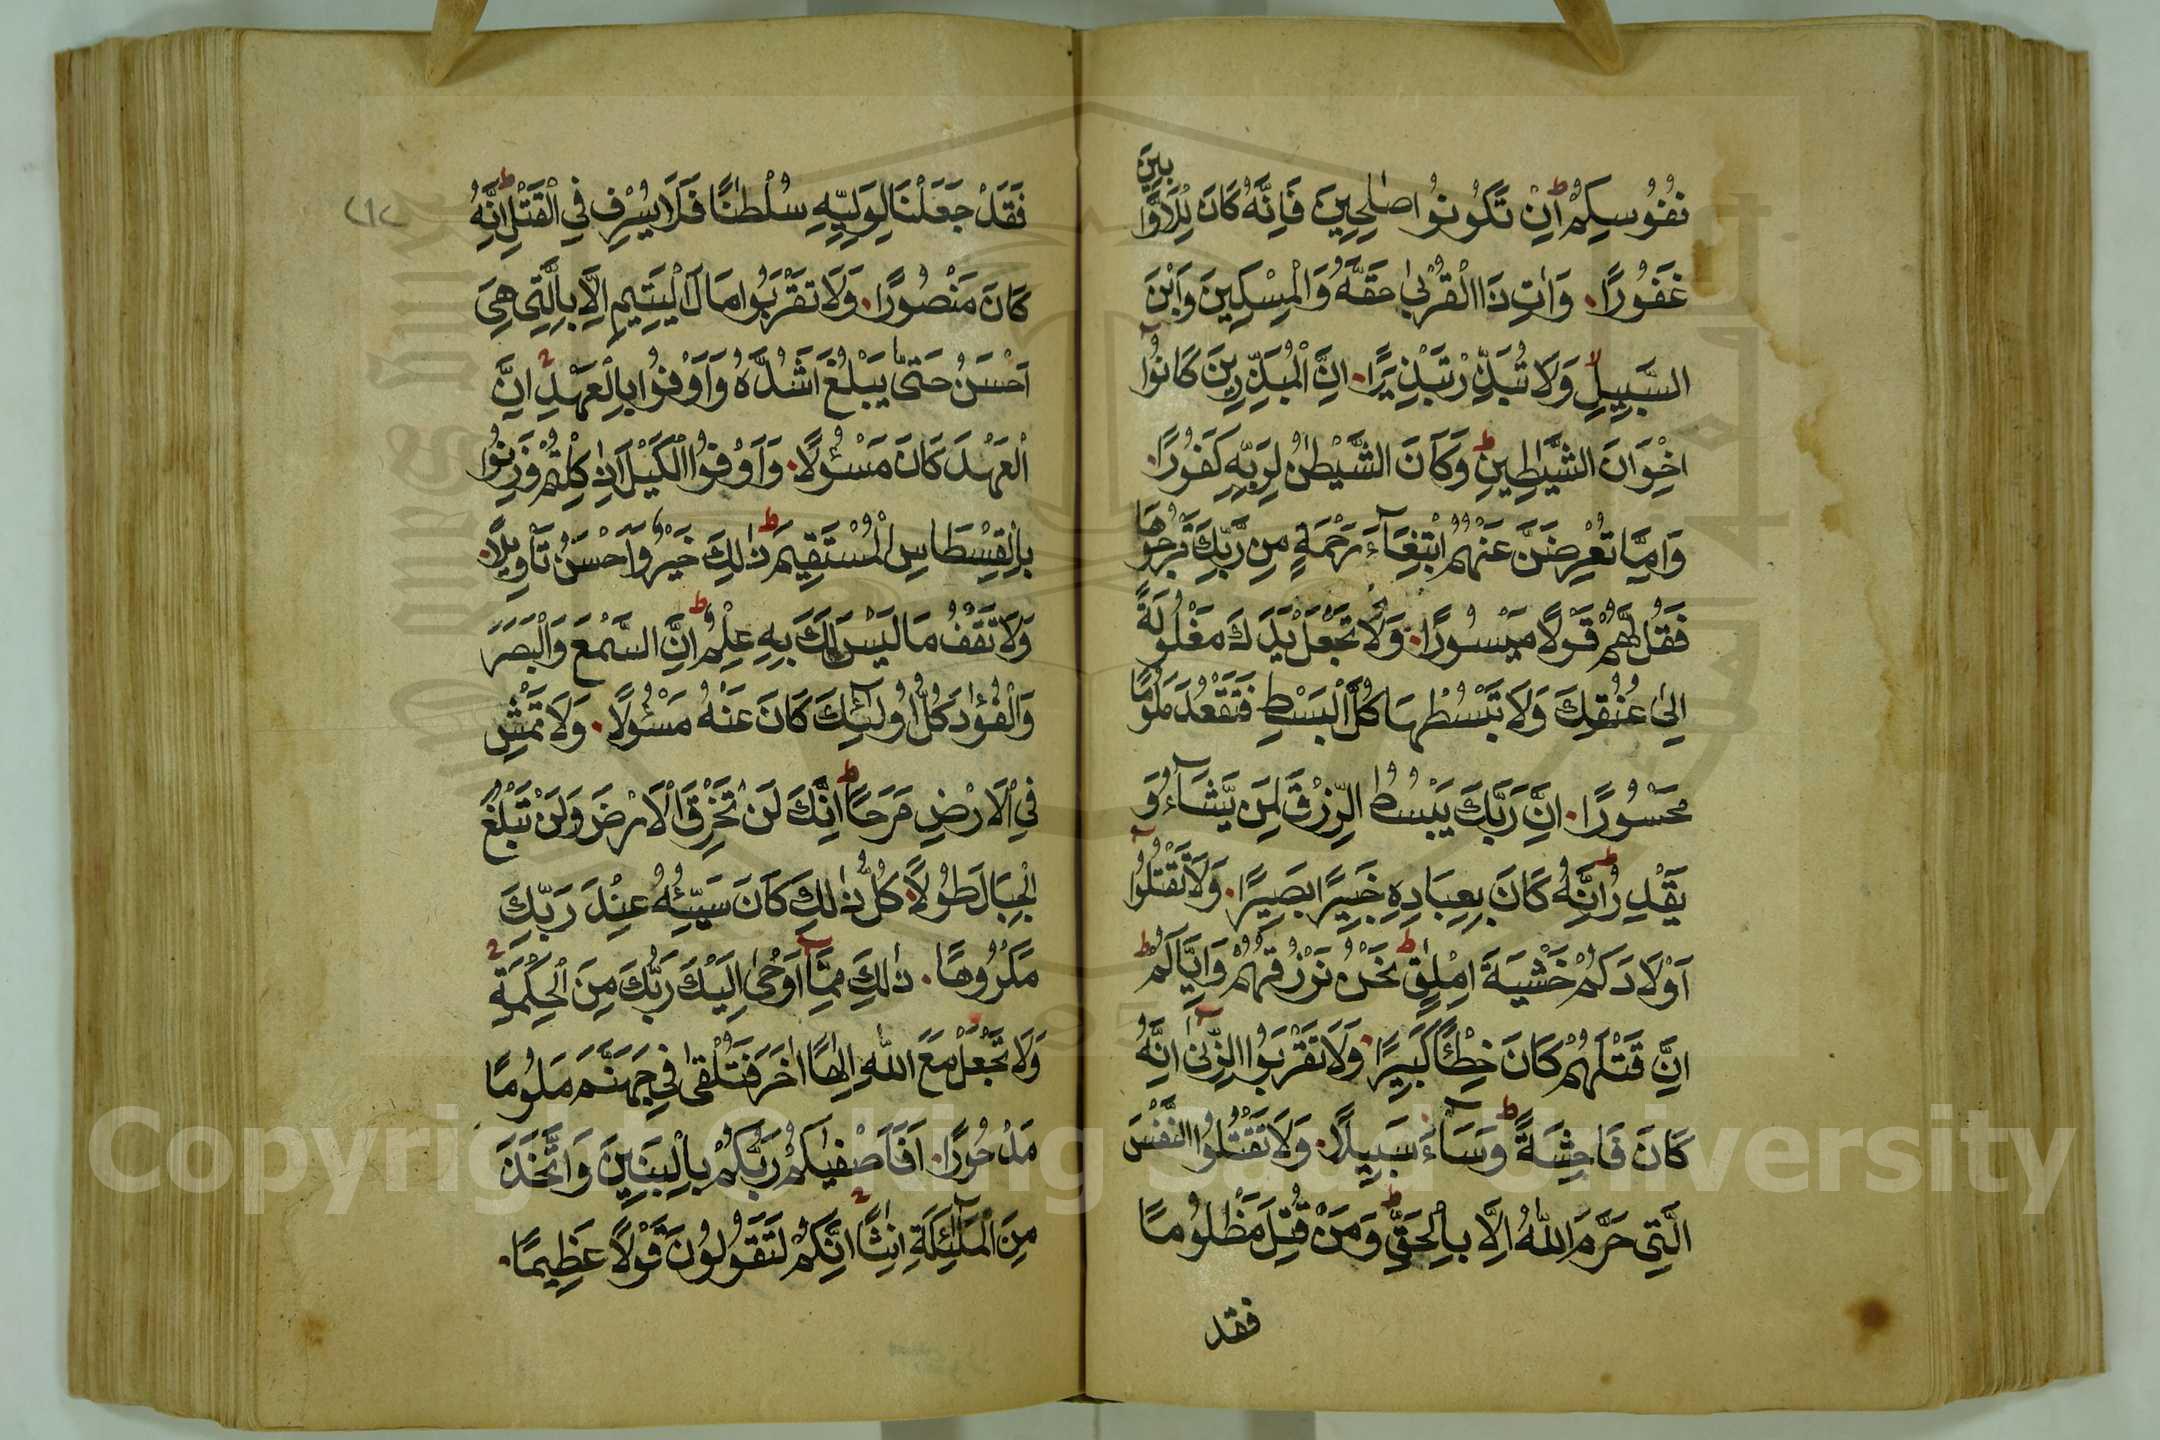 نُفُوسِكُمْ اِنْ تَكُونُوا صٰلِحِينَ فَاِنَّهُ كَانَ لِلْاَوَّابِينَ
غَفُورًا وَاٰتِ ذَا الْقُرْبٰى حَقَّهُ وَالْمِسْكِينَ وَابْنَ
السَّبِيلِ وَلَا تُبَذِّرْ تَبْذِيرًا اِنَّ الْمُبَذِّرِينَ كَانُوا
اِخْوَانَ الشَّيٰطِينِ وَكَانَ الشَّيْطٰنُ لِرَبِّهِ كَفُورًا
وَاِمَّا تُعْرِضَنَّ عَنْهُمُ ابْتِغَآءَ رَحْمَةٍ مِنْ رَبِّكَ تَرْجُوهَا
فَقُلْ لَهُمْ قَوْلًا مَيْسُورًا وَلَا تَجْعَلْ يَدَكَ مَغْلُولَةً
اِلٰى عُنُقِكَ وَلَا تَبْسُطْهَا كُلَّ الْبَسْطِ فَتَقْعُدَ مَلُومًا
مَحْسُورًا اِنَّ رَبَّكَ يَبْسُطُ الرِّزْقَ لِمَنْ يَّشَآءُ وَ
يَقْدِرُ اِنَّهُ كَانَ بِعِبَادِهِ خَبِيرًا بَصِيرًا وَلَا تَقْتُلُوا
اَوْلَادَكُمْ خَشْيَةَ اِمْلٰقٍ نَحْنُ نَرْزُقُهُمْ وَاِيَّاكُمْ
اِنَّ قَتْلَهُمْ كَانَ خِطْئًا كَبِيرًا وَلَا تَقْرَبُوا الزِّنٰى اِنَّهُ
كَانَ فَاحِشَةً وَسَآءَ سَبِيلًا وَلَا تَقْتُلُوا النَّفْسَ
الَّتِى حَرَّمَ اللّٰهُ اِلَّا بِالْحَقِّ وَمَنْ قُتِلَ مَظْلُومًا
فقد
فَقَدْ جَعَلْنَا لِوَلِيِّهِ سُلْطٰنًا فَلَا يُسْرِفْ فِى الْقَتْلِ اِنَّهُ
كَانَ مَنْصُورًا وَلَا تَقْرَبُوا مَالَ الْيَتِيمِ اِلَّا بِالَّتِى هِىَ
اَحْسَنُ حَتّٰى يَبْلُغَ اَشُدَّهُ وَاَوْفُوا بِالْعَهْدِ اِنَّ
الْعَهْدَ كَانَ مَسْئُولًا وَاَوْفُوا الْكَيْلَ اِذَا كِلْتُمْ وَزِنُوا
بِالْقِسْطَاسِ الْمُسْتَقِيمِ ذٰلِكَ خَيْرٌ وَاَحْسَنُ تَاْوِيلًا
وَلَا تَقْفُ مَا لَيْسَ لَكَ بِهِ عِلْمٌ اِنَّ السَّمْعَ وَالْبَصَرَ
وَالْفُؤَادَ كُلُّ اُولٰٓئِكَ كَانَ عَنْهُ مَسْئُولًا وَلَا تَمْشِ
فِى الْاَرْضِ مَرَحًا اِنَّكَ لَنْ تَخْرِقَ الْاَرْضَ وَلَنْ تَبْلُغَ
الْجِبَالَ طُولًا كُلُّ ذٰلِكَ كَانَ سَيِّئُهُ عِنْدَ رَبِّكَ
مَكْرُوهًا ذٰلِكَ مِمَّآ اَوْحٰى اِلَيْكَ رَبُّكَ مِنَ الْحِكْمَةِ
وَلَا تَجْعَلْ مَعَ اللّٰهِ اِلٰهًا اٰخَرَ فَتُلْقٰى فِى جَهَنَّمَ مَلُومًا
مَدْحُورًا اَفَاَصْفٰيكُمْ رَبُّكُمْ بِالْبَنِينَ وَاتَّخَذَ
مِنَ الْمَلٰٓئِكَةِ اِنٰثًا اِنَّكُمْ لَتَقُولُونَ قَوْلًا عَظِيمًا
Copyright © King Saud University